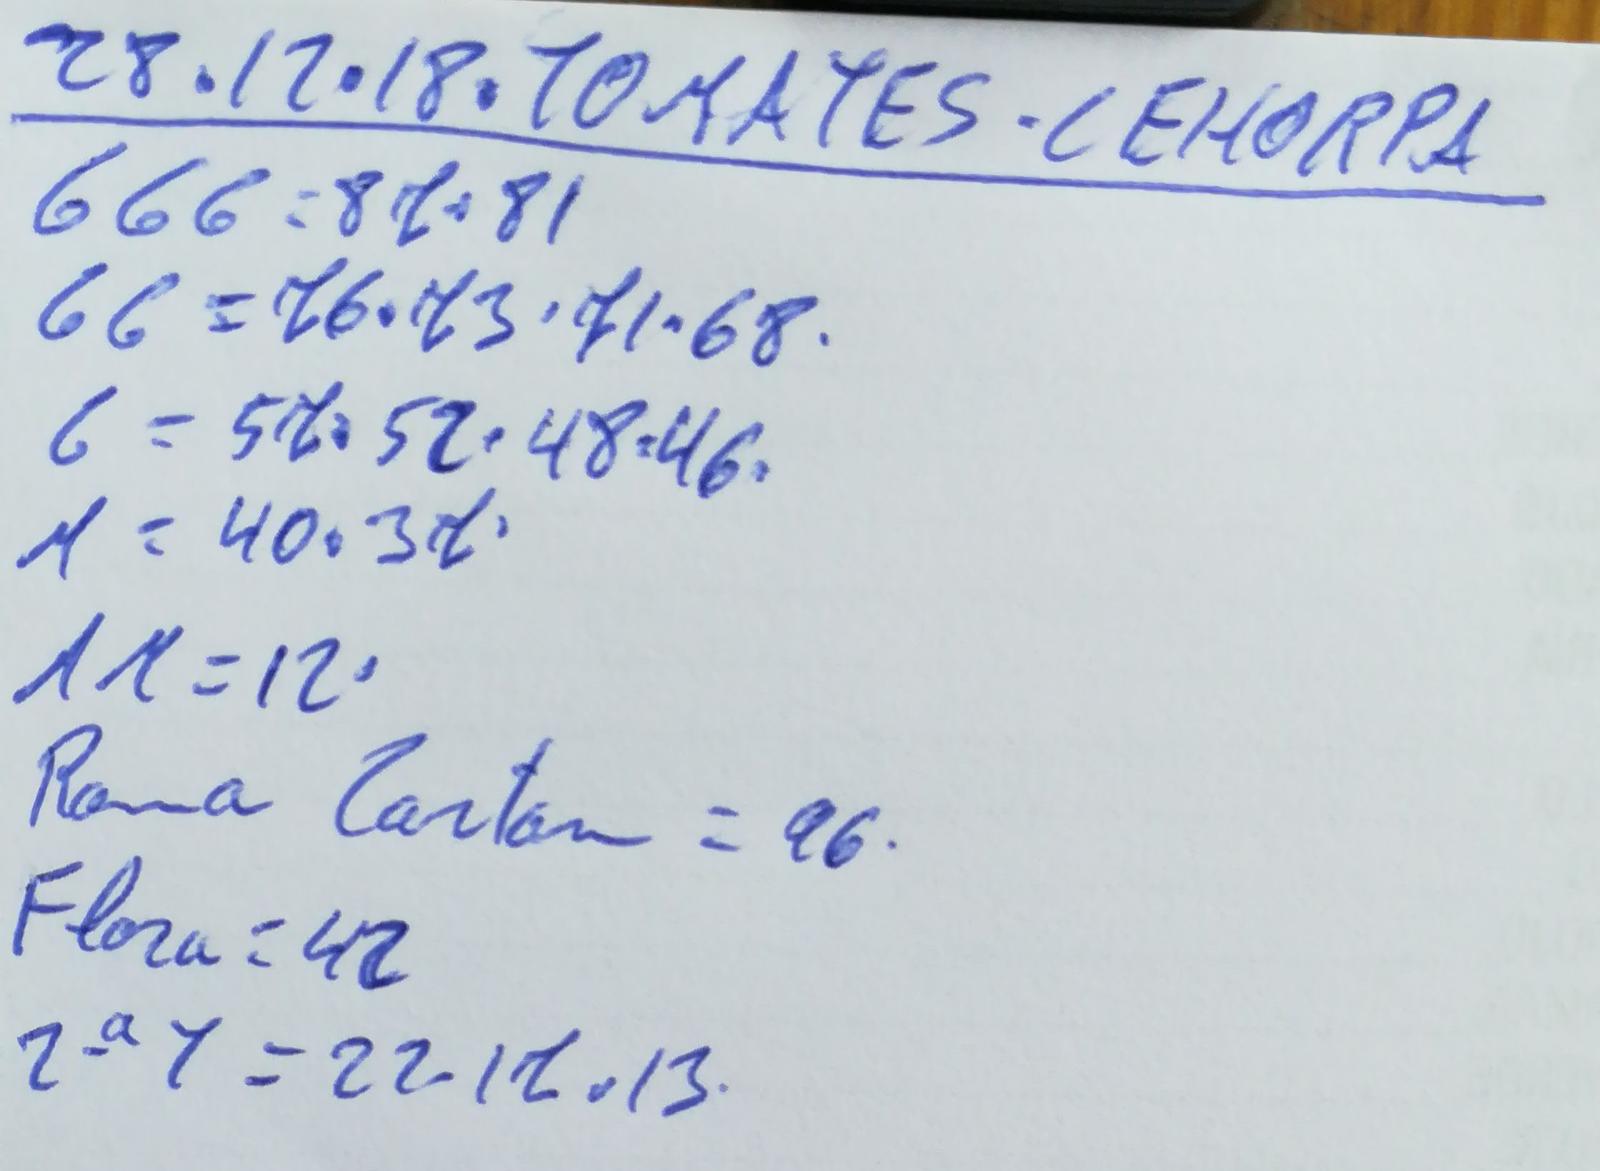 28.12.18.TOMATES-CEHORPA
GGG=87.81
GG=76.73.71.68.
G=57.52.48.46.
M=40.37.
MM=12.
Rama Cartom=96.
Flora=42
2ªT=22.17.13.